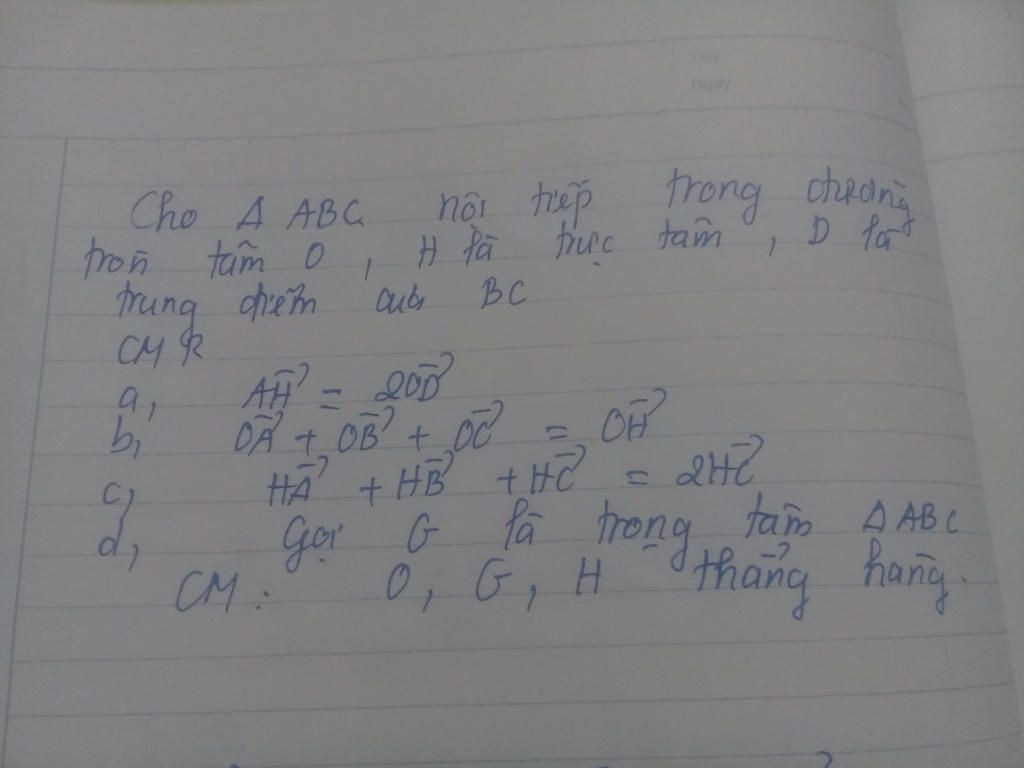 Thứ
Ngày
Cho Δ ABC nội tiếp trong đường
tròn tâm O , H là trực tâm , D là
trung điểm của BC
CMR
a, AH→ = 2OD→
b, OA→ + OB→ + OC→ = OH→
c, HA→ + HB→ + HC→ = 2HC→
d, Gọi G là trọng tâm Δ ABC
CM : O, G, H thẳng hàng.